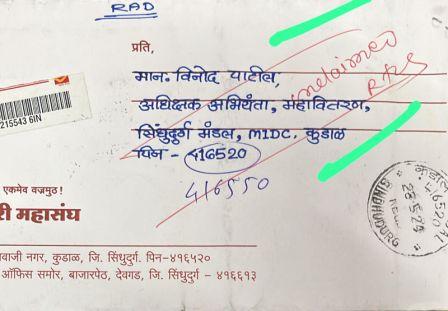 RAD
प्रति,
मान. विनोद पाटील,
अधिक्षक अभियंता, महावितरण,
सिंधुदुर्ग मंडल, MIDC, कुडाळ
पिन - 416520
416550
215543 6IN
एकमेव वज्रमुठ!
री महासंघ
वाजी नगर, कुडाळ, जि. सिंधुदुर्ग. पिन-४१६५२०
ऑफिस समोर, बाजारपेठ, देवगड, जि. सिंधुदुर्ग - ४१६६१३
SINDHUDURG